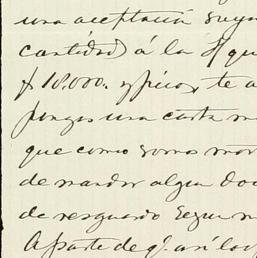 una aceptación suya
cantidad) á la f/ que
$18.000. y pico, te a
pongas una carta m
que como somos mor
de mandar algun do
de resguardo Segun m
Aparte de q.e así lo